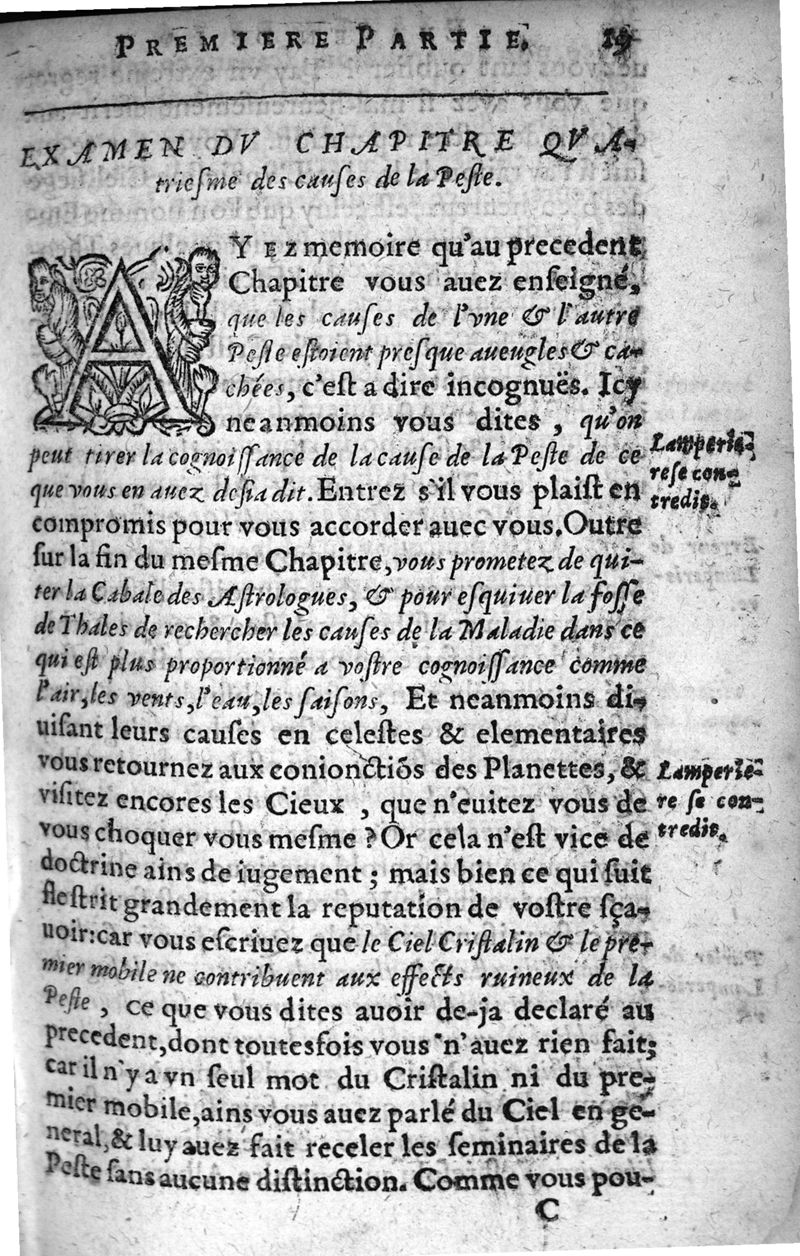 PREMIERE PARTIE. 19
EXAMEN DV CHAPITRE QVA-
triesme des causes de la Peste.
AYEZ memoire qu'au precedent
Chapitre vous auez enseigné,
que les causes de l'vne & l'autre
Peste estoient presque aueugles & ca-
chées, c'est a dire incognuës. Icy
neanmoins vous dites, qu'on
peut tirer la cognoissance de la cause de la Peste de ce
que vous en auez desia dit. Entrez s'il vous plaist en
compromis pour vous accorder auec vous. Outre
sur la fin du mesme Chapitre, vous prometez de qui-
ter la Cabale des Astrologues, & pour esquiuer la fosse
de Thales de rechercher les causes de la Maladie dans ce
qui est plus proportionné a vostre cognoissance comme
l'air, les vents, l'eau, les saisons, Et neanmoins di-
uisant leurs causes en celestes & elementaires
vous retournez aux conionctiõs des Planettes, &
visitez encores les Cieux, que n'euitez vous de
vous choquer vous mesme? Or cela n'est vice de
doctrine ains de iugement; mais bien ce qui suit
flestrit grandement la reputation de vostre sça-
uoir: car vous escriuez que le Ciel Cristalin & le pre-
mier mobile ne contribuent aux effects ruineux de la
Peste, ce que vous dites auoir de-ja declaré au
precedent, dont toutesfois vous n'auez rien fait;
car il n'y a vn seul mot du Cristalin ni du pre-
mier mobile, ains vous auez parlé du Ciel en ge-
neral, & luy auez fait receler les seminaires de la
Peste sans aucune distinction. Comme vous pou-
C
Lamperie-
re se con-
tredit.
Lamperie-
re se con-
tredit.